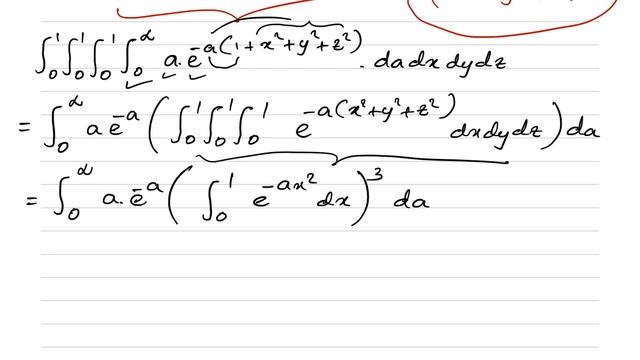 ∫₀¹∫₀¹∫₀¹∫₀^∝ a.e^{-a(1+x²+y²+z²)} . da dx dy dz
= ∫₀^∝ a e^{-a} ( ∫₀¹∫₀¹∫₀¹ e^{-a(x²+y²+z²)} dx dy dz ) da
= ∫₀^∝ a. e^{-a} ( ∫₀¹ e^{-ax²} dx )³ da